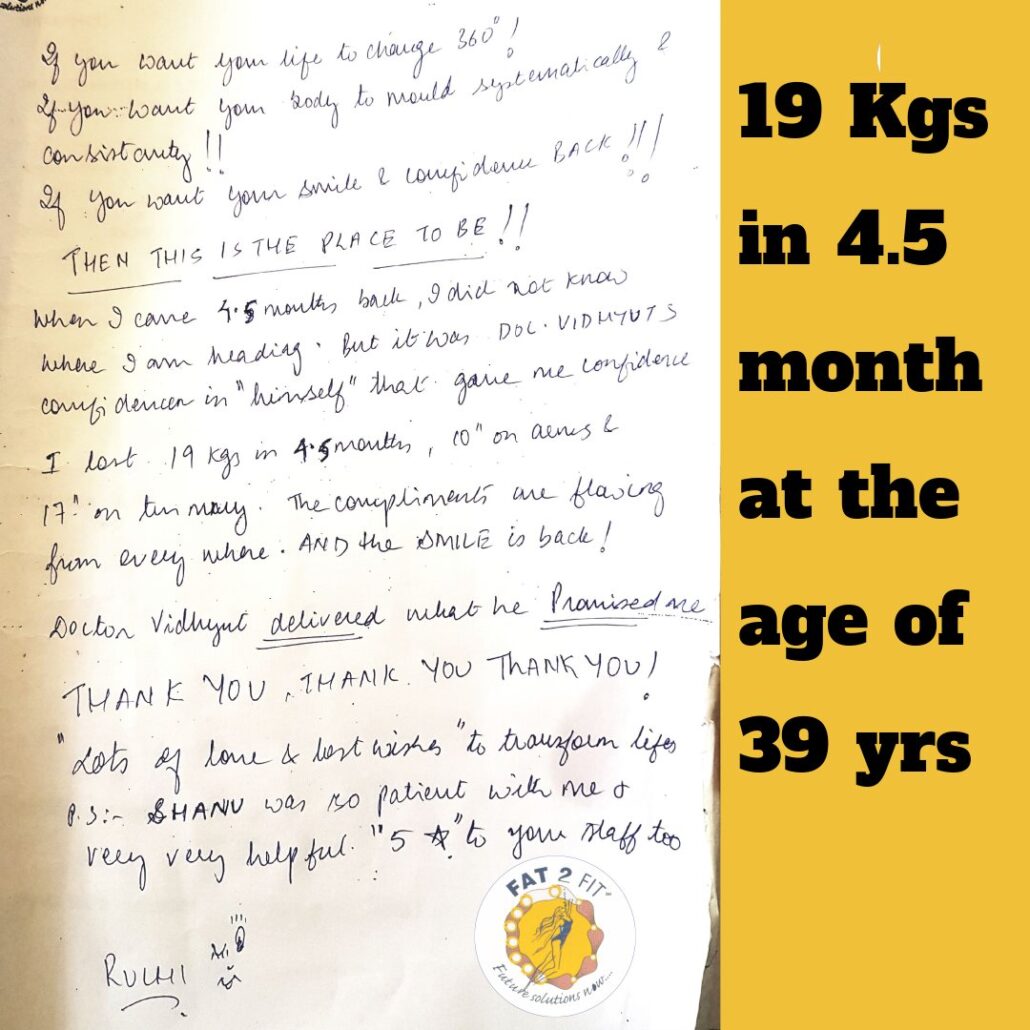 solutions now
If you want your life to change 360°!
If you want your body to mould systematically &
consistantly !!
If you want your smile & confidence BACK !!!
THEN THIS IS THE PLACE TO BE !!
When I came 4.5 months back, I did not know
where I am heading. But it was DOC. VIDHYUTS
confidence in "himself" that gave me confidence
I lost 19 kgs in 4.5 months, 10" on &
17" on tummy. The compliments are
from every where. AND the SMILE is back!
Doctor Vidhyut delivered what he Promised me
THANK YOU, THANK YOU THANK YOU!
"Lots of love & best wishes" to transform lifes
P.S:- SHANU was so patient with me &
very very helpful. "5 ☆" to your staff too
RUCHI
FAT 2 FIT
Future solutions now...
19 Kgs
in 4.5
month
at the
age of
39 yrs